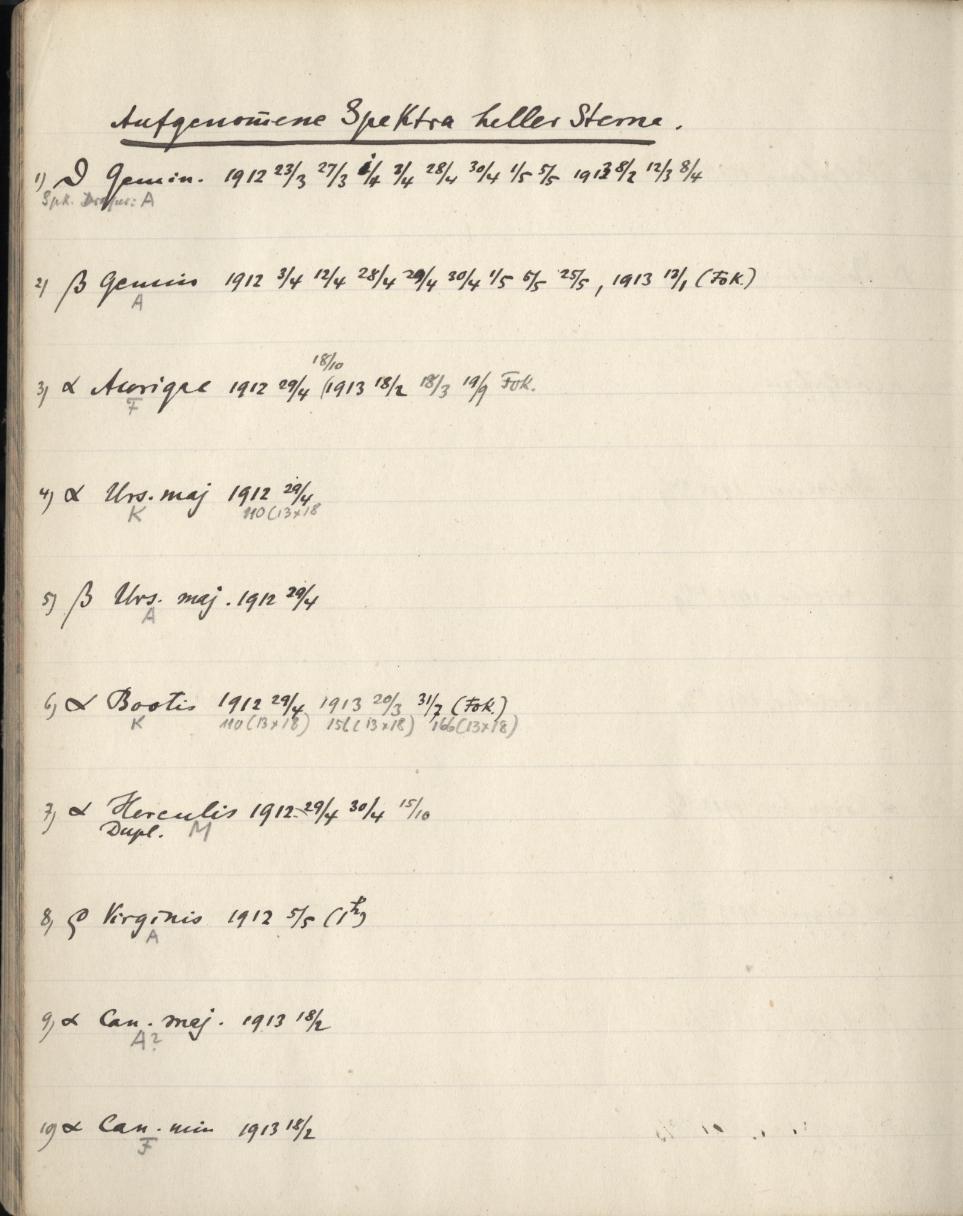 Aufgenom̄ene Spektra heller Sterne.
1) Gemin. 1912 23/3 27/3 1/4 3/4 28/4 30/4 1/5 5/5 1913 8/2 12/3 8/4
Spk. Draper: A
2) β Gemin 1912 3/4 12/4 28/4 29/4 30/4 1/5 5/5 25/5, 1913 13/1 (Fok.)
A
18/10
3) α Aurigae 1912 29/4 (1913 18/2 18/3 19/9 Fok.
F
4) α Urs. maj 1912 29/4
K 110 (13×18
5) β Urs. maj. 1912 29/4
A
6) α Bootis 1912 29/4 1913 20/3 31/7 (Fok.)
K 110 (13×18) 156 (13×18) 166 (13×18)
7) α Herculis 1912 29/4 30/4 15/10
Dupl. M
8) ζ Virginis 1912 5/5 (1h)
A
9) α Can. maj. 1913 18/2
A?
10) α Can. min 1913 18/2
F